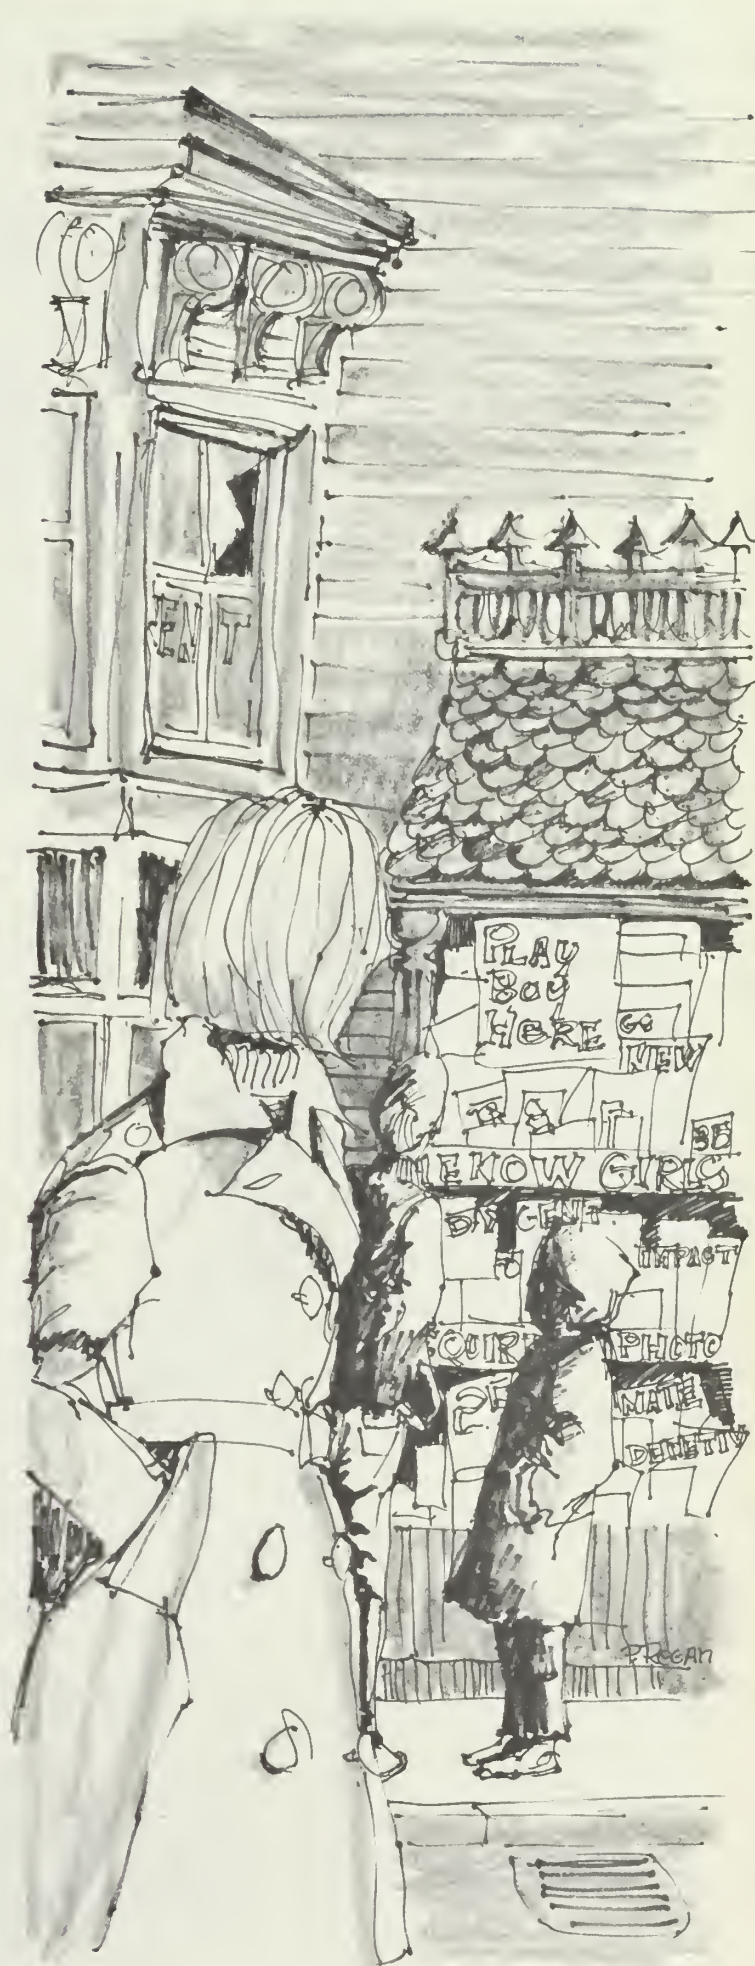 ENT
PLAY
BOY
HERE
GO
NEW
35
ENOW GIRLS
GENT
IMPACT
QUIR
PHOTO
MATE
DETETIV
P. ROGAN